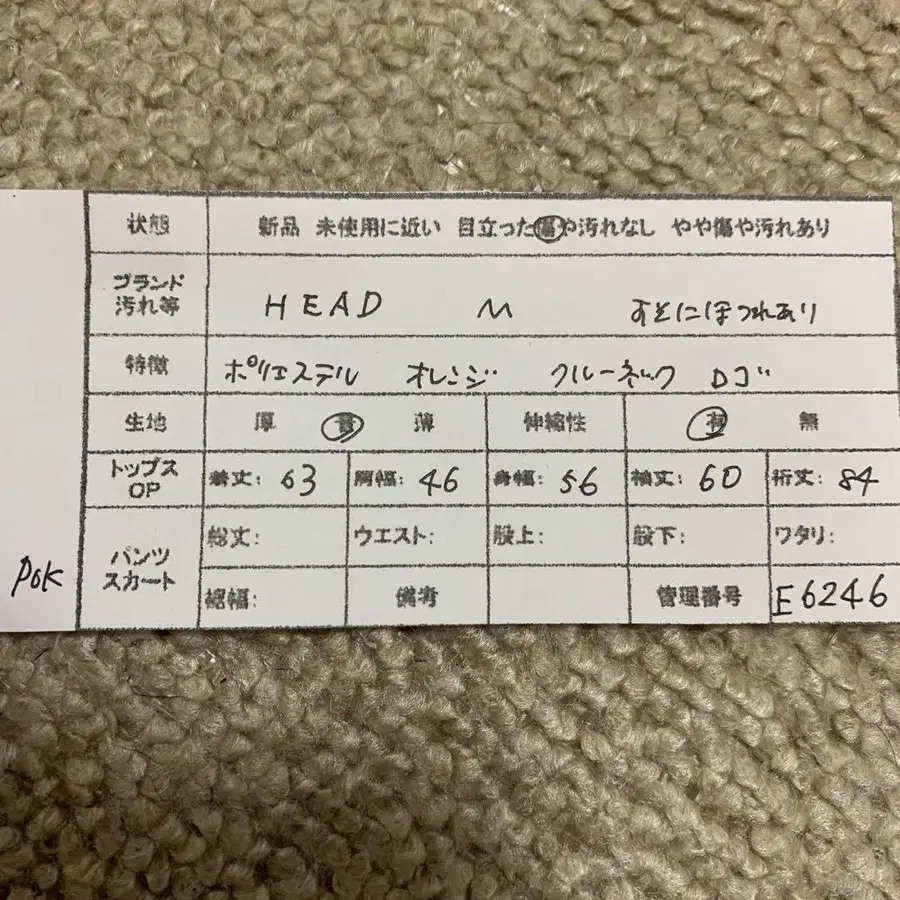 状態 新品 未使用に近い 目立った傷や汚れなし やや傷や汚れあり
ブランド
汚れ等 HEAD M すそにほつれあり
特徴 ポリエステル オレンジ クルーネック ロゴ
生地 厚 普 薄 伸縮性 有 無
トップス
OP 着丈: 63 肩幅: 46 身幅: 56 袖丈: 60 裄丈: 84
パンツ
スカート 総丈: ウエスト: 股上: 股下: ワタリ:
裾幅: 備考 管理番号 E6246
POK